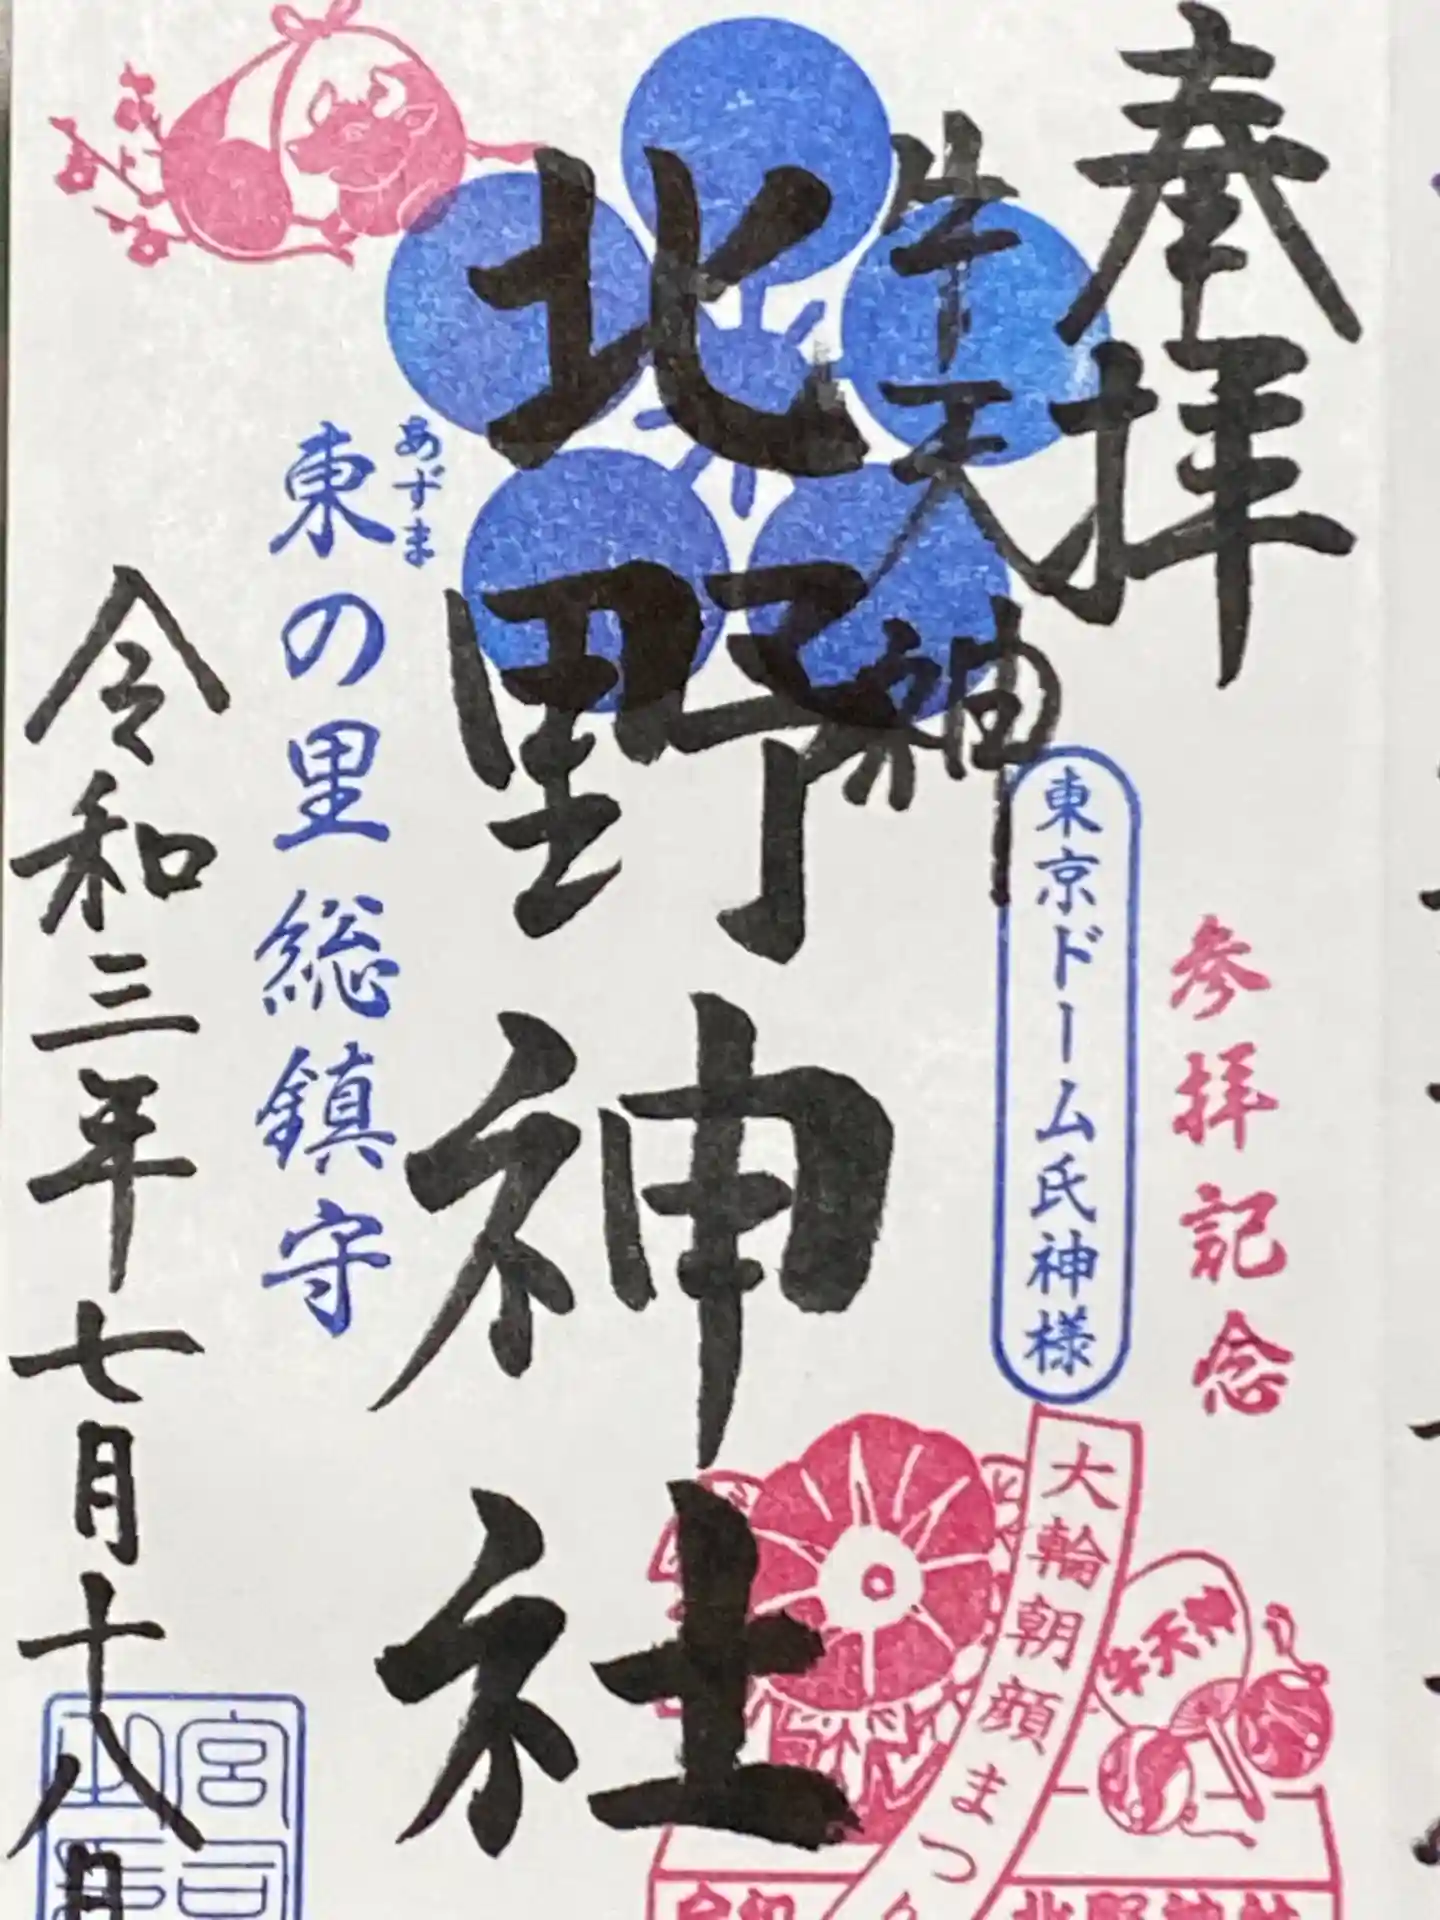 奉拝
参拝記念
牛天神
東京ドーム氏神様
北野神社
あずま
東の里総鎮守
令和三年七月十八日
大輪朝顔まつり
牛天神
北野神社
令和
宮司